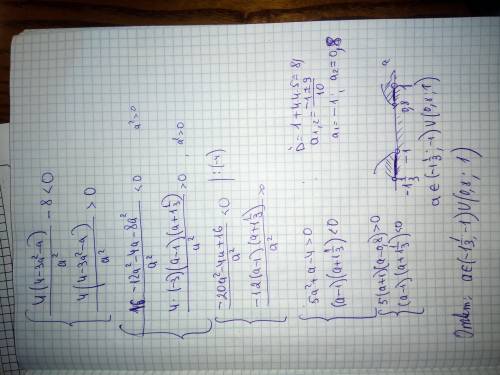 4(4-3a²-a)/a² - 8 < 0
4(4-3a²-a)/a² > 0
(16-12a²-4a-8a²)/a² < 0 a² > 0
4·(-3)(a-1)(a+1 1/3)/a² > 0, a² > 0
(-20a²-4a+16)/a² < 0 | :(-4)
-12(a-1)(a+1 1/3)/a² > 0
5a²+a-4 > 0
(a-1)(a+1 1/3) < 0
D = 1+4·4·5 = 81
a1,2 = (-1±9)/10
a1 = -1; a2 = 0,8
5(a+1)(a-0,8) > 0
(a-1)(a+1 1/3) < 0
-1 1/3 -1 0,8 1 a
a ∈ (-1 1/3; -1) ∪ (0,8; 1)
Ответ: a ∈ (-1 1/3; -1) ∪ (0,8; 1)